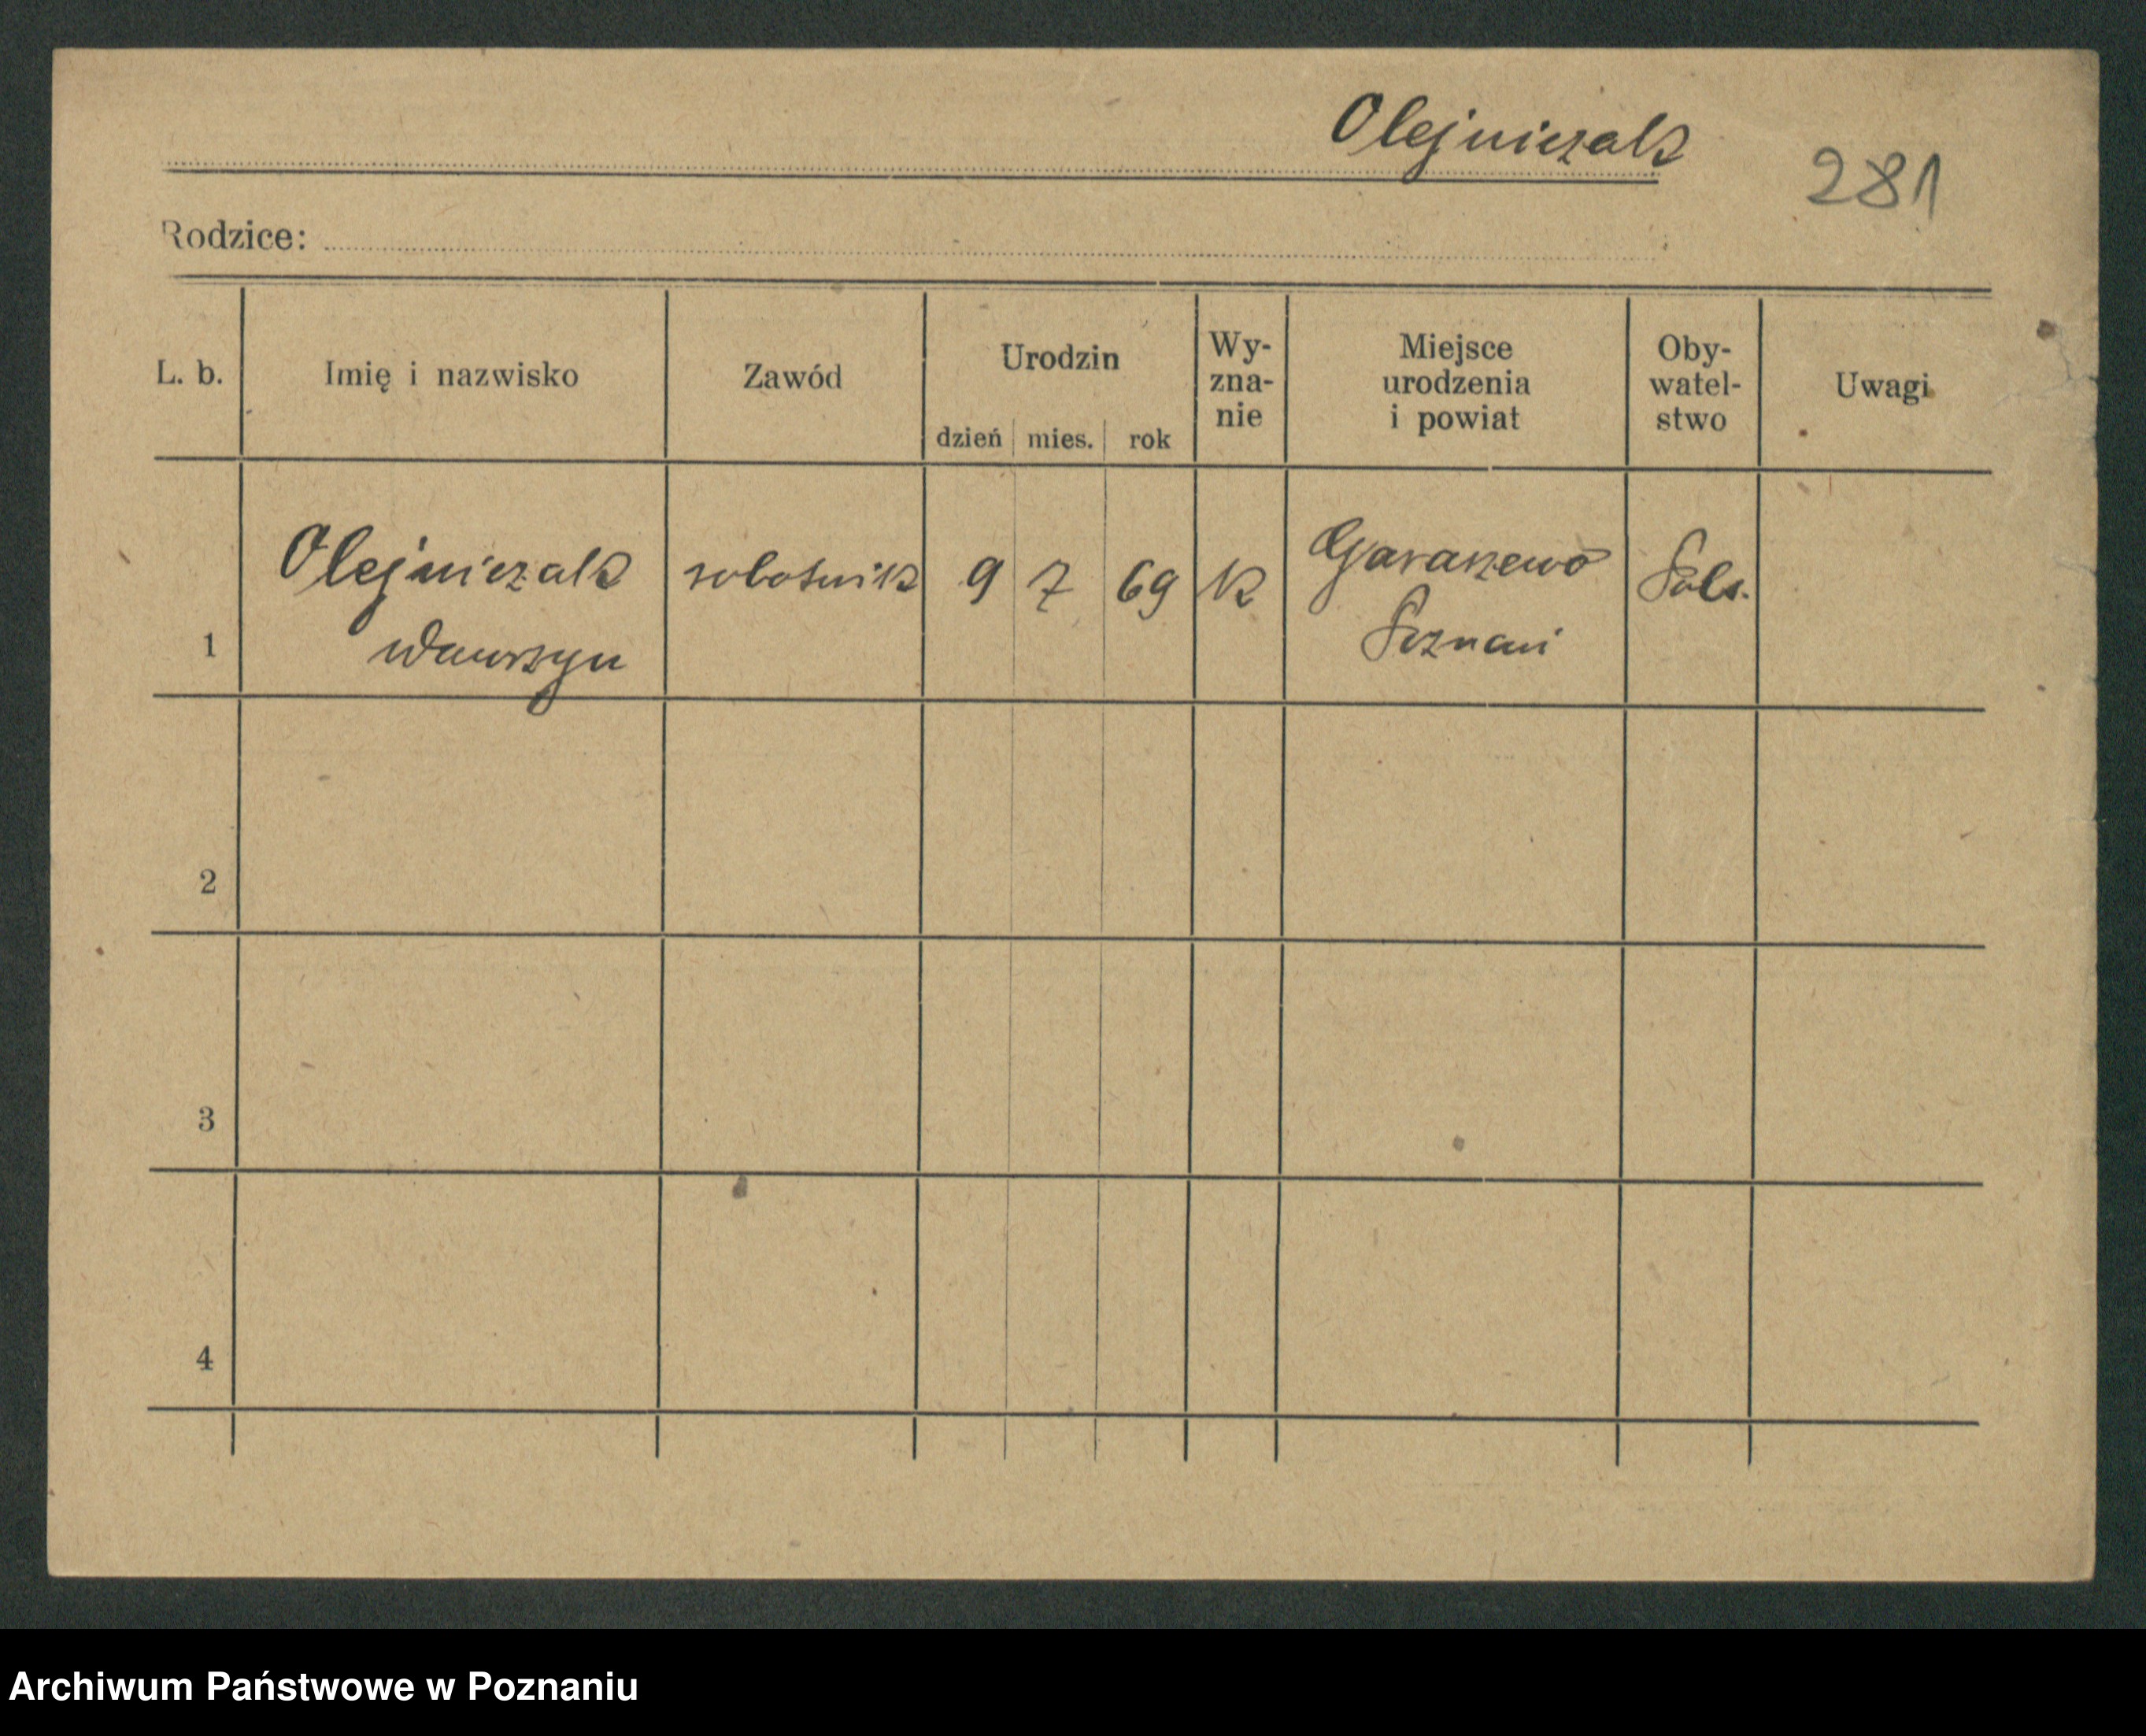 Olejniczak
281
Rodzice:
L. b.
Imię i nazwisko
Zawód
Urodzin
dzień mies. rok
Wy-
zna-
nie
Miejsce
urodzenia
i powiat
Oby-
watel-
stwo
Uwagi
1
Olejniczak
Wawrzyn
robotnik
9
7
69
k
Garaszewo
Poznań
Pols.
2
3
4
Archiwum Państwowe w Poznaniu